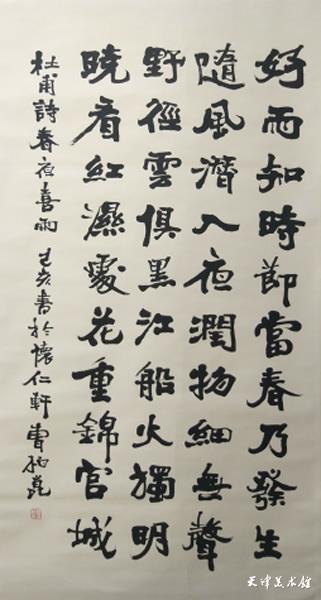 好雨知時節當春乃發生
隨風潛入夜潤物細無聲
野徑雲俱黑江船火獨明
曉看紅濕處花重錦官城
杜甫詩春夜喜雨 己亥書於懷仁軒 曹柏崑
天津美術館